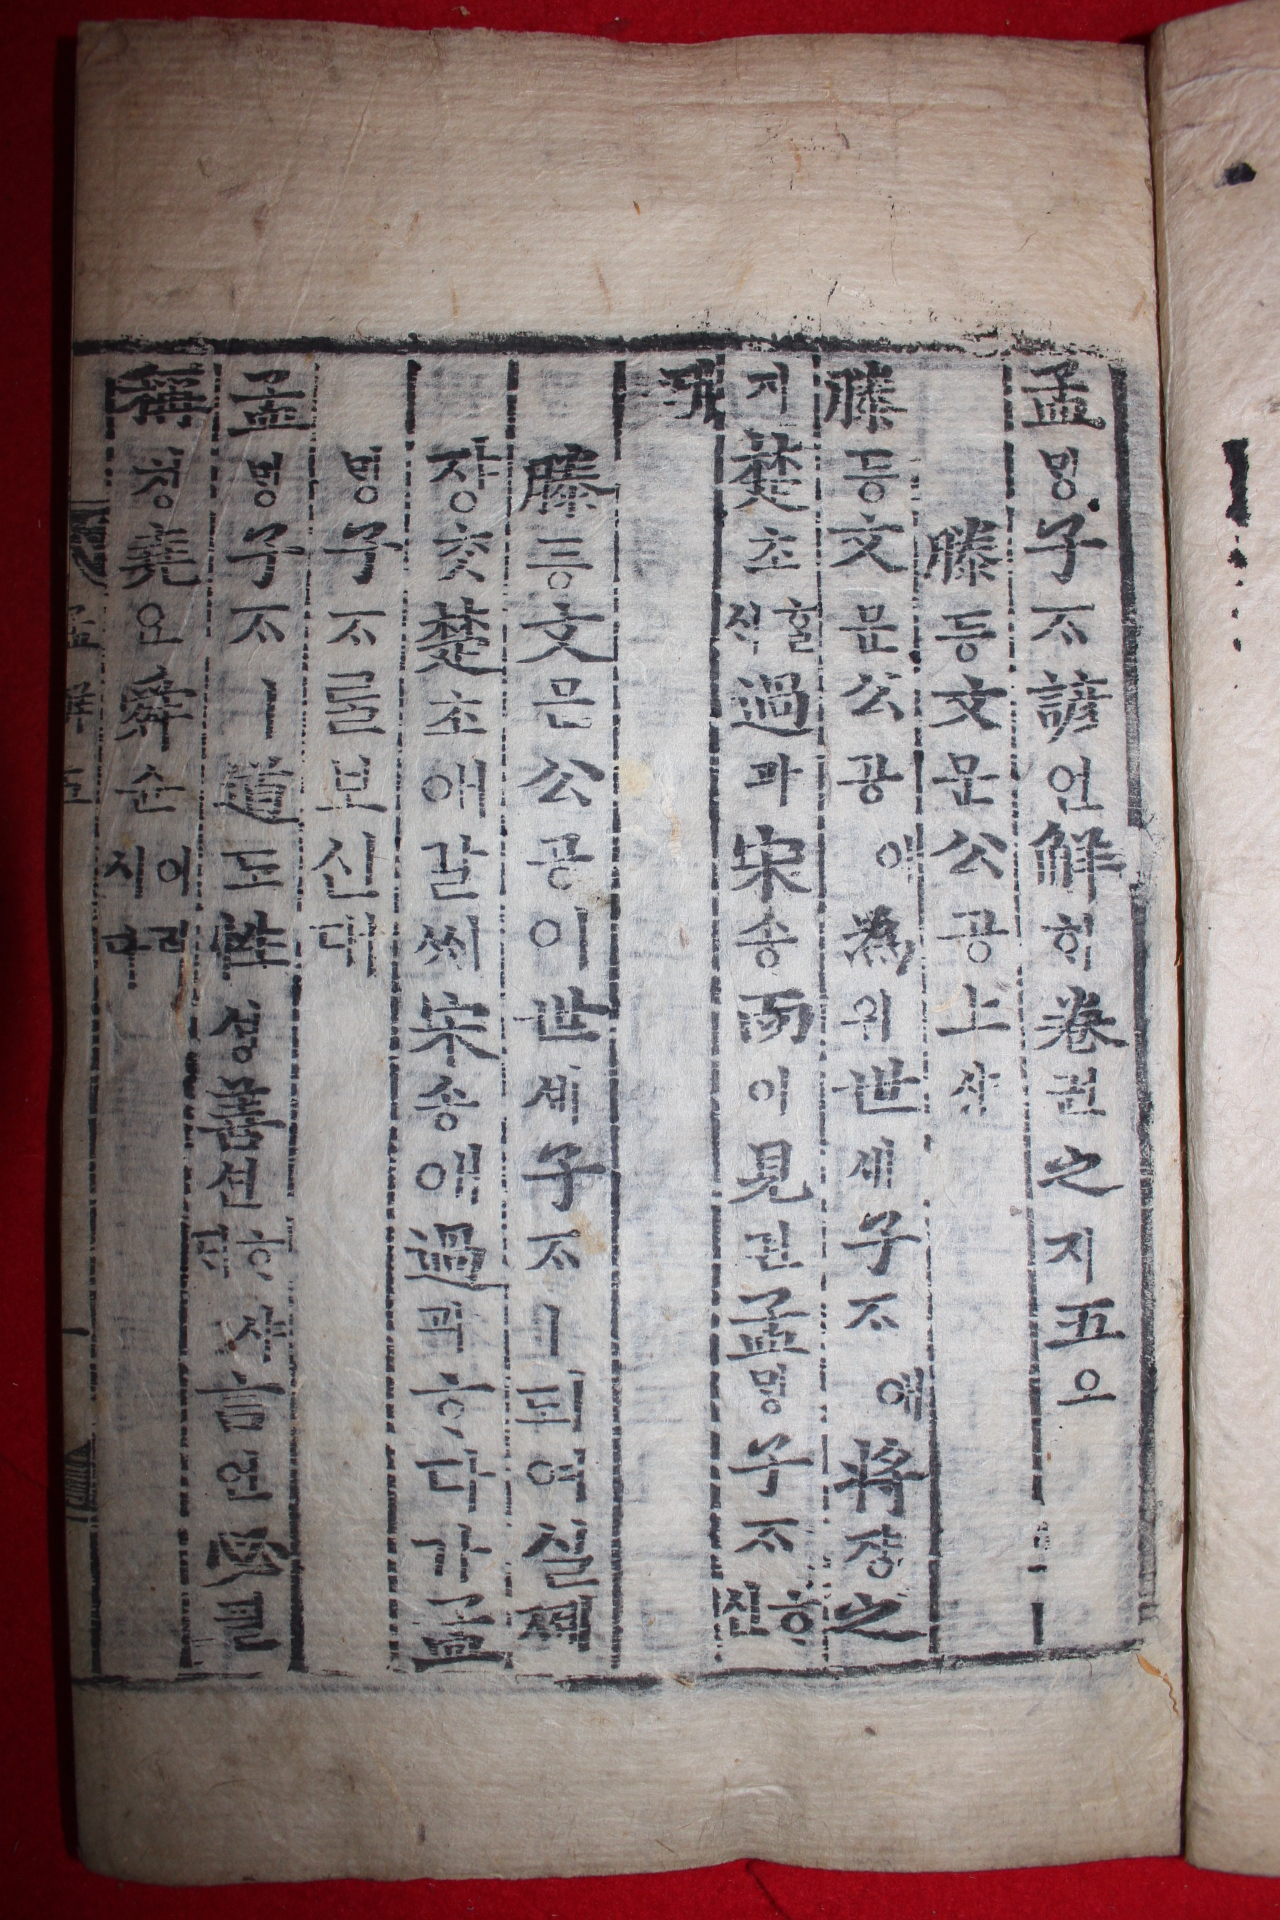 孟ᄆᆡᇰ子ᄌᆞ諺언解ᄒᆡ卷권之지五오
滕등文문公공上샹
滕등文문公공애爲위世셰子ᄌᆞ애將쟝之
지楚초ᄒᆞᆯᄉᆡ過과宋송而이見견孟ᄆᆡᇰ子ᄌᆞᄒᆞ신
滕등文문公공이世셰子ᄌᆞㅣ되여실제
쟝ᄎᆞᆺ楚초애갈ᄉᆡ宋송애過과ᄒᆞ다가孟
ᄆᆡᇰ子ᄌᆞᄅᆞᆯ보신대
孟ᄆᆡᇰ子ᄌᆞㅣ道도性셩善션ᄒᆞ샤ᄃᆡ言언必필
稱칭堯요舜슌이러시다
孟 解 五